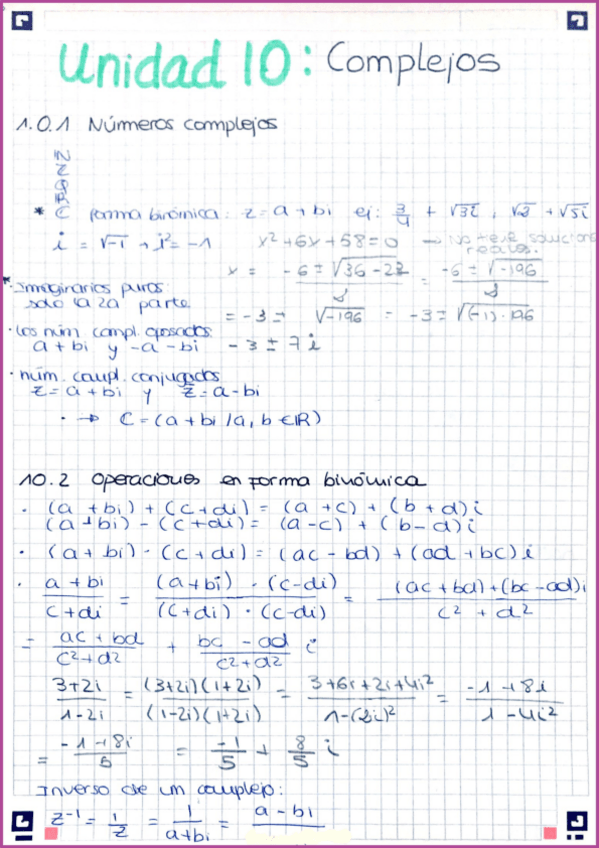 Unidad 10: Complejos
1.0.1 Números complejos
N
Z
Q
R
* C forma binómica: z = a + bi ej: 3/4 + √3i, √2 + √5i
i = √-1 → i² = -1 x² + 6x + 58 = 0 → No tiene soluciones reales.
x = -6 ± √36 - 22 / 2 = -6 ± √-196 / 2
* Imaginarios puros:
solo la 2a parte
= -3 ± √-196 = -3 ± √(-1)·196
· Los núm compl. opuestos
a + bi y -a - bi -3 ± 7i
· núm. compl. conjugados
z = a + bi y z = a - bi
· → C = (a + bi / a, b ∈ IR)
10.2 Operaciones en forma binómica
· (a + bi) + (c + di) = (a + c) + (b + d)i
(a + bi) - (c + di) = (a - c) + (b - d)i
· (a + bi) · (c + di) = (ac - bd) + (ad + bc)i
· a + bi / c + di = (a + bi) · (c - di) / (c + di) · (c - di) = (ac + bd) + (bc - ad)i / c² + d²
= ac + bd / c² + d² + bc - ad / c² + d² i
3+2i / 1-2i = (3+2i)(1+2i) / (1-2i)(1+2i) = 3+6i+2i+4i² / 1-(2i)² = -1+8i / 1-4i²
= -1+8i / 5 = -1/5 + 8/5 i
Inverso de un complejo:
z⁻¹ = 1/z = 1 / a+bi = a - bi